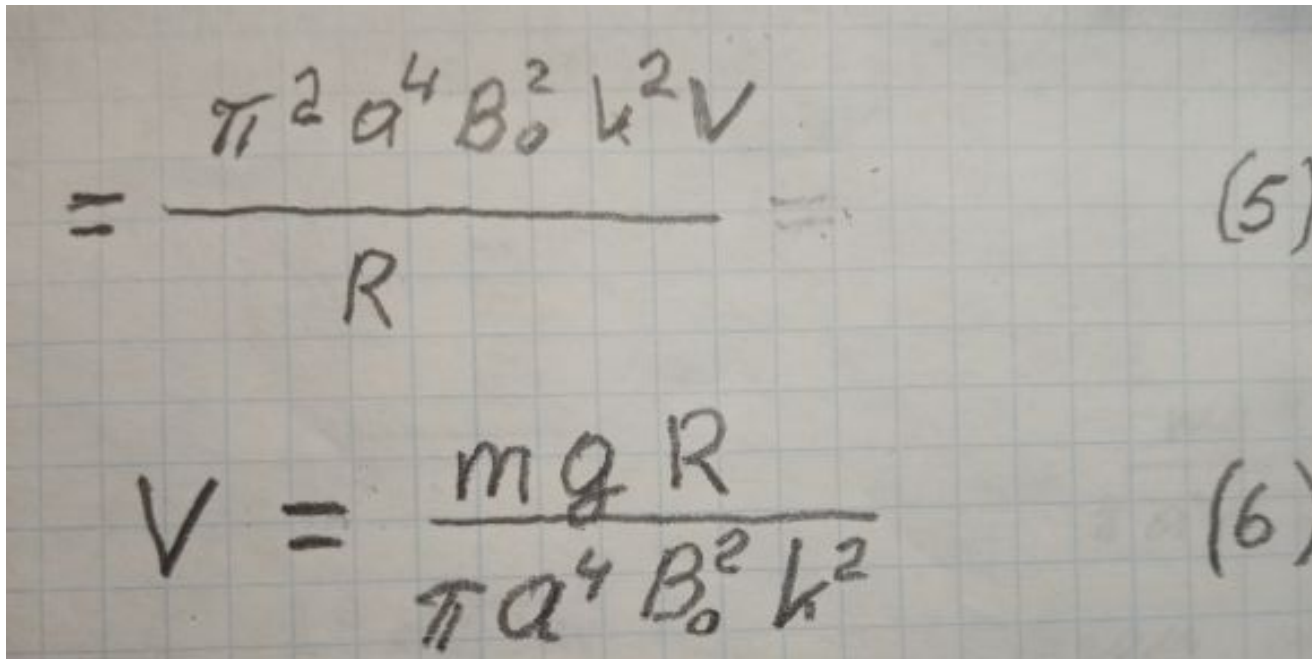 = π² a⁴ B₀² k² V / R = (5)
V = m g R / π a⁴ B₀² k² (6)